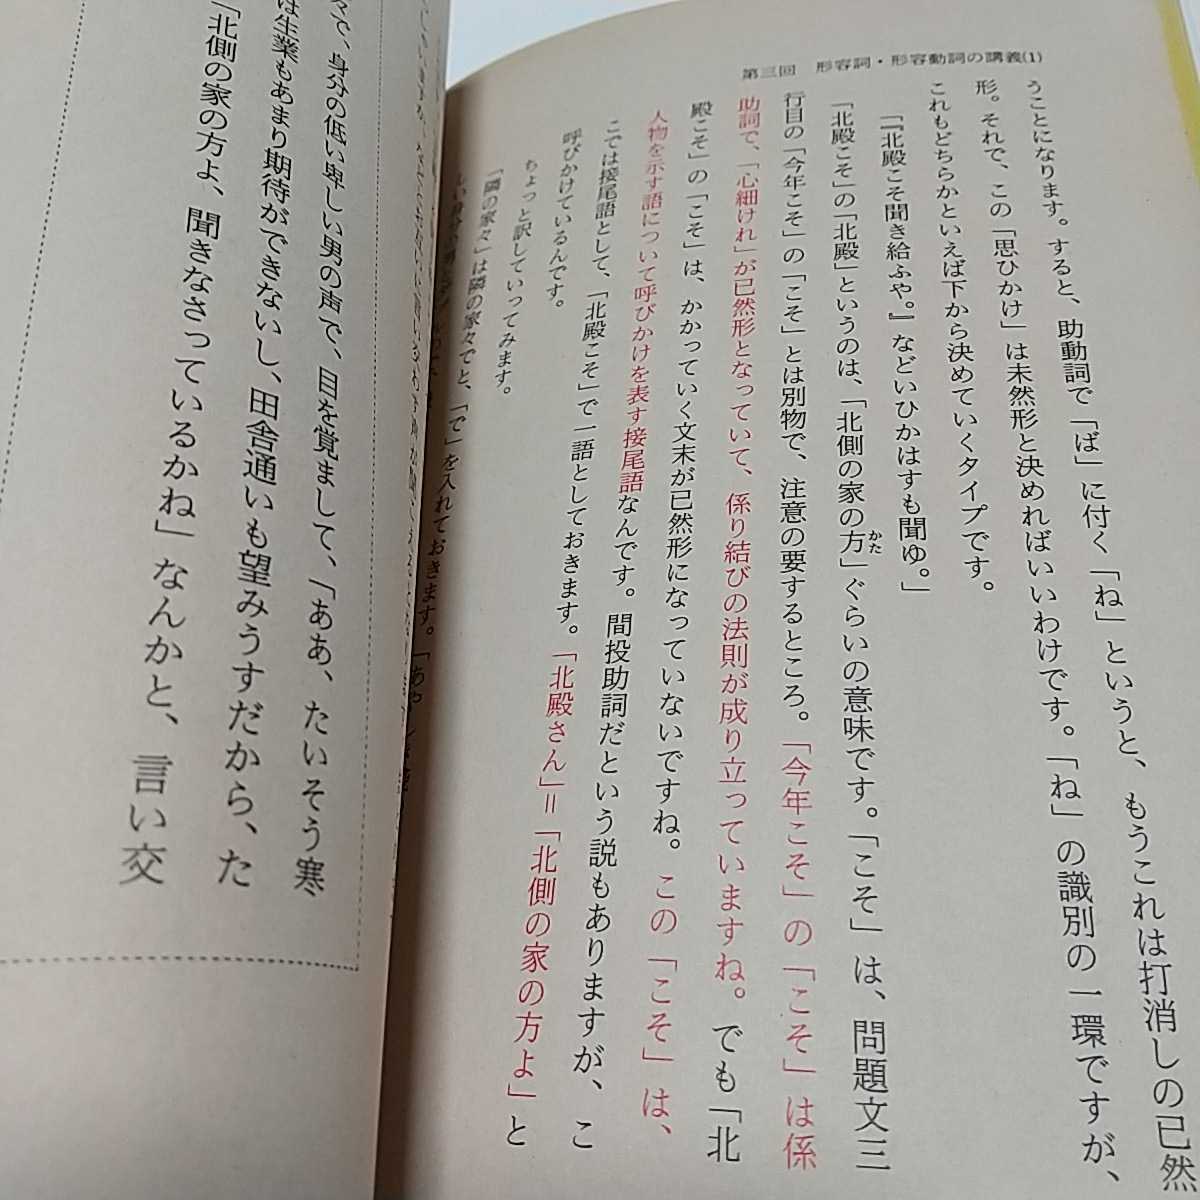 第三回 形容詞・形容動詞の講義(1)
うことになります。すると、助動詞で「ば」に付く「ね」というと、もうこれは打消しの已然
形。それで、この「思ひかけ」は未然形と決めればいいわけです。「ね」の識別の一環ですが、
これもどちらかといえば下から決めていくタイプです。
「『北殿こそ聞き給ふや。』などいひかはすも聞ゆ。」
「北殿こそ」の「北殿」というのは、「北側の家の方かた」ぐらいの意味です。「こそ」は、問題文三
行目の「今年こそ」の「こそ」とは別物で、注意の要するところ。「今年こそ」の「こそ」は係
助詞で、「心細けれ」が已然形となっていて、係り結びの法則が成り立っていますね。でも「北
殿こそ」の「こそ」は、かかっていく文末が已然形になっていないですね。この「こそ」は、
人物を示す語について呼びかけを表す接尾語なんです。間投助詞だという説もありますが、こ
こでは接尾語として、「北殿こそ」で一語としておきます。「北殿さん」=「北側の家の方よ」と
呼びかけているんです。
ちょっと訳していってみます。
「隣の家々」は隣の家々でと、「で」を入れておきます。
々で、身分の低い卑しい男の声で、目を覚まして、「ああ、たいそう寒
は生業もあまり期待ができないし、田舎通いも望みうすだから、た
「北側の家の方よ、聞きなさっているかね」なんかと、言い交